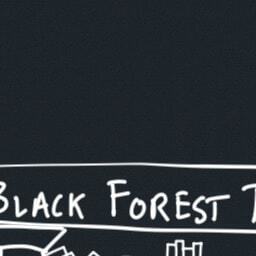 BLACK FOREST T